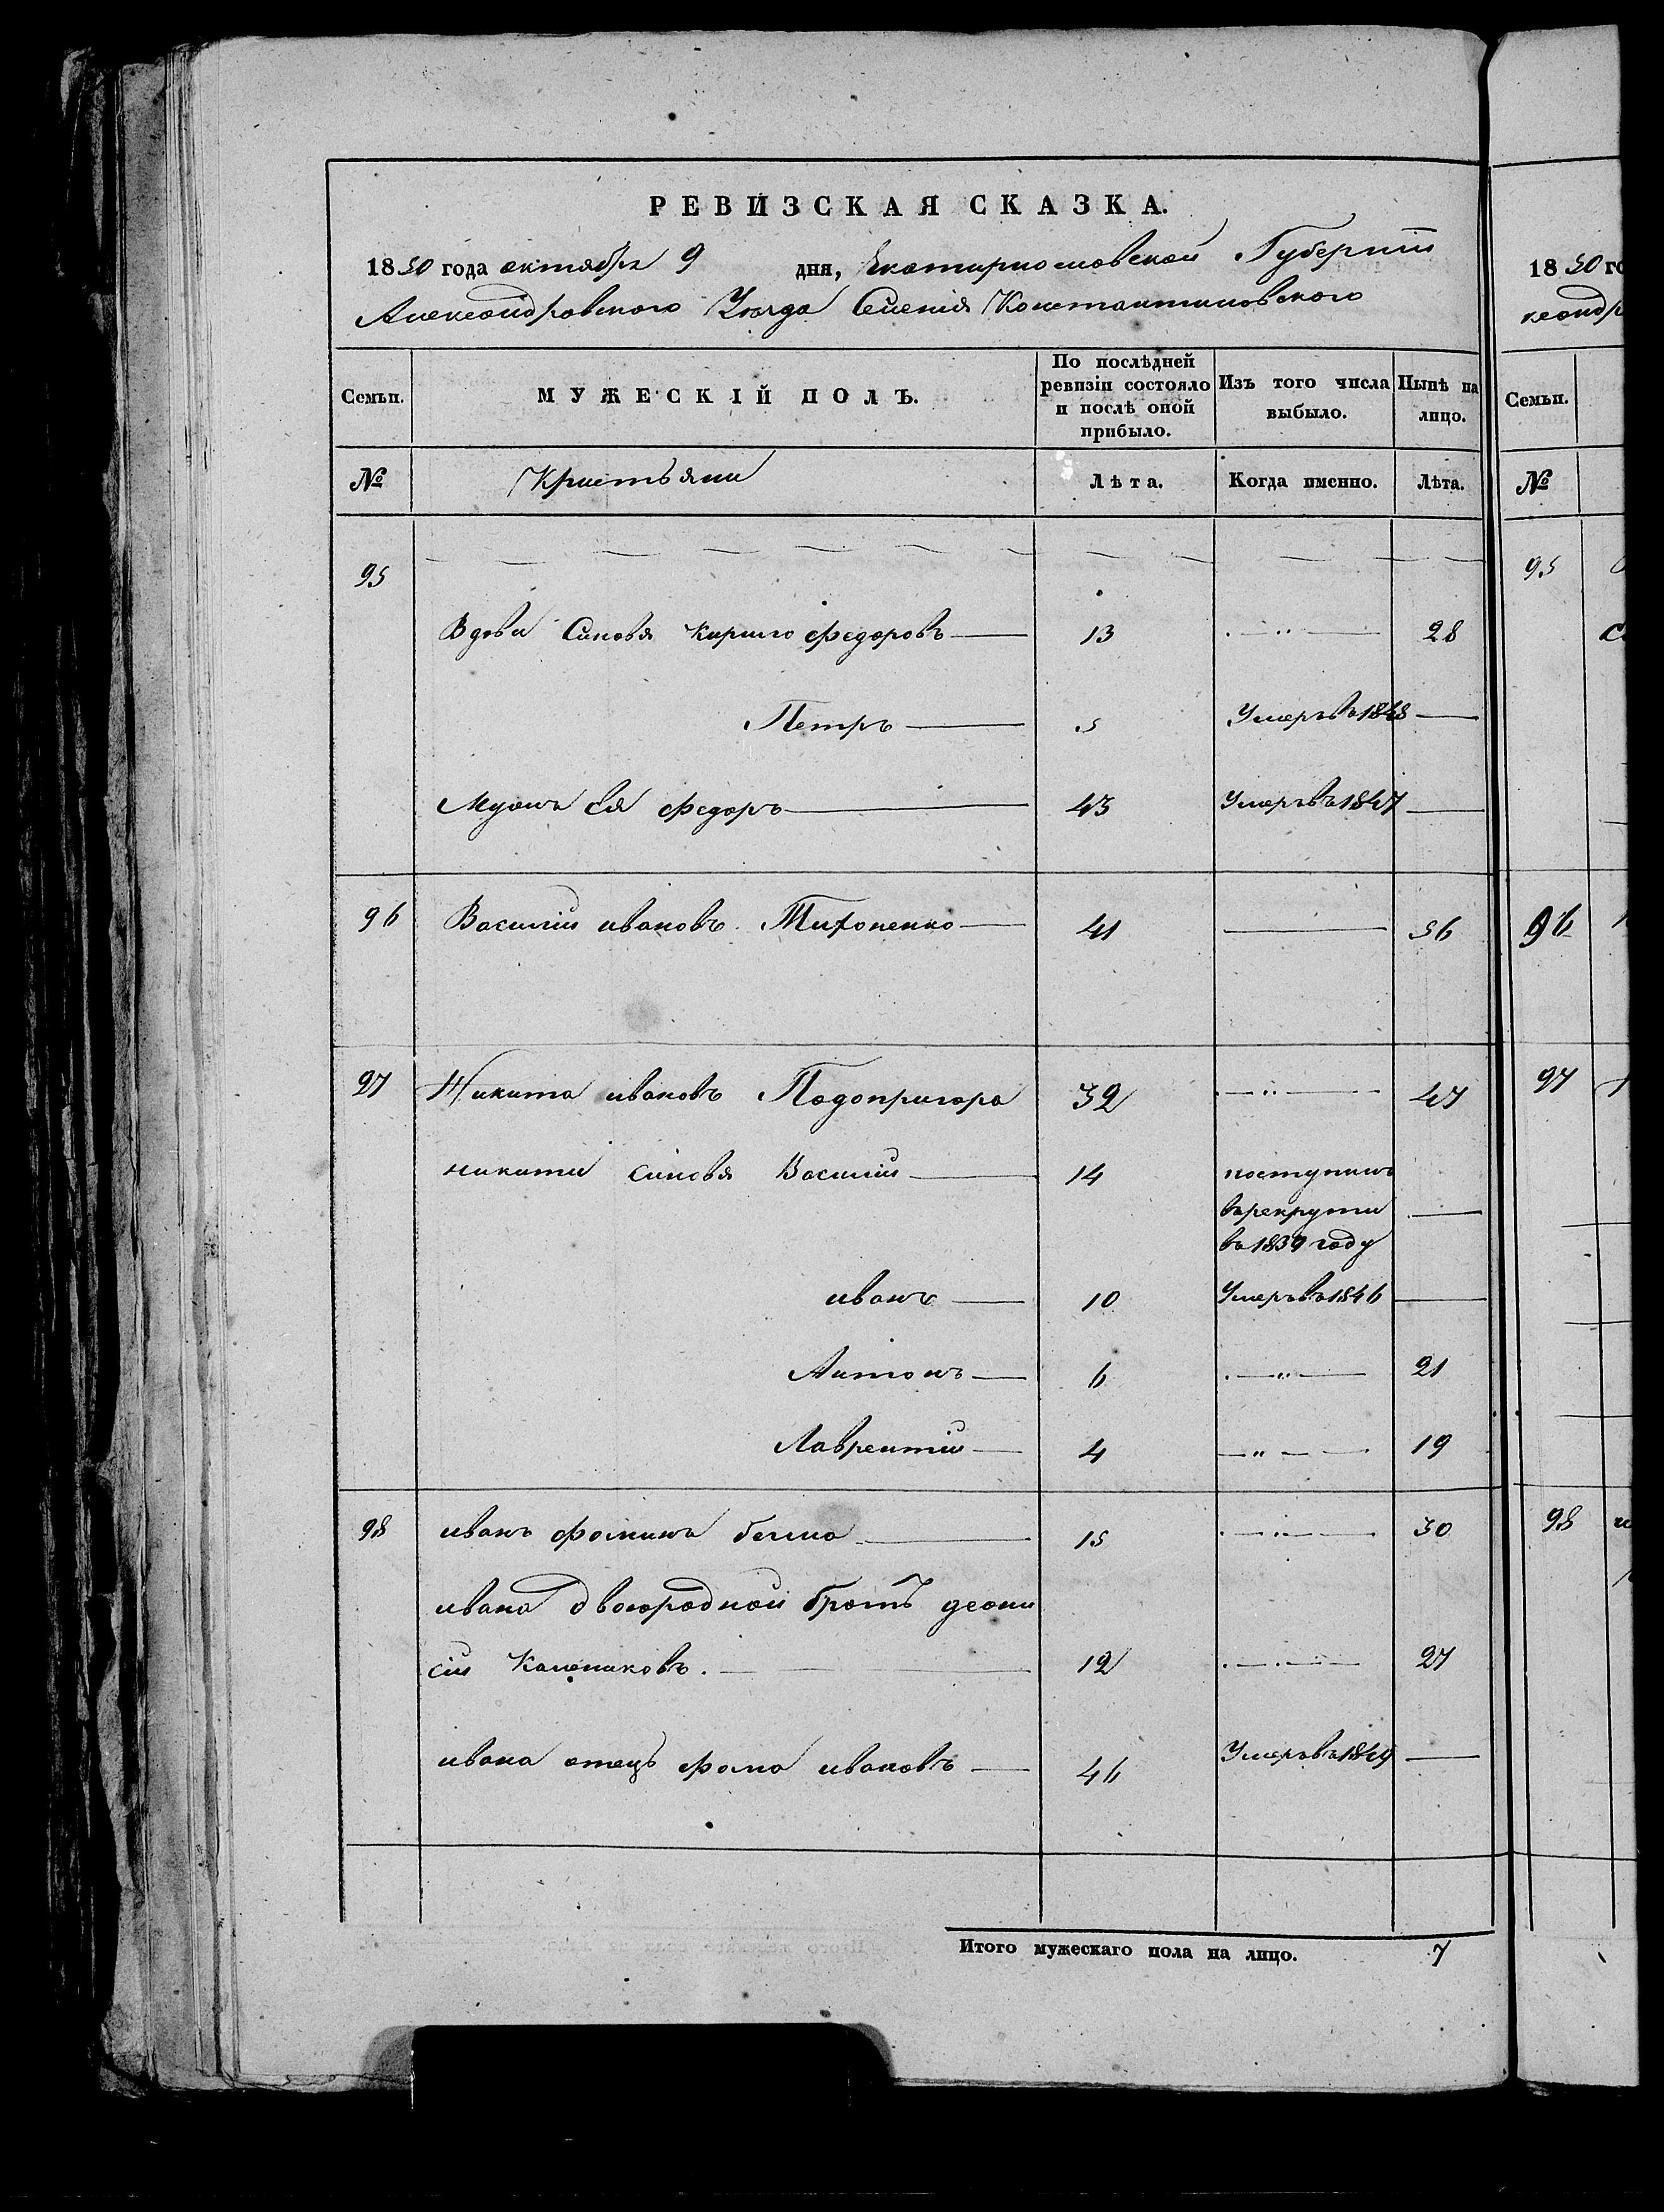 РЕВИЗСКАЯ СКАЗКА.
1850 года октября 9 дня, Екатириословской Губернии
Александровского Уезда Селения Константиновского
Семьи. МУЖЕСКІЙ ПОЛЪ. По послѣдней ревизіи состояло и послѣ оной прибыло. Изъ того числа выбыло. Нынѣ на лицо.
№ Кристъяни Лѣта. Когда именно. Лѣта.
95
Вдови Синовя Кирило Федоровъ 13 28
Петръ 5 Умеръ въ 1848
Мужъ Ея Федоръ 43 Умеръ въ 1847
96 Василий ивановъ Тихоненко 41 56
97 Никита ивановъ Подопригора 32 47
никити синовя Василий 14 поступилъ
в рекрути
въ 1839 году
иванъ 10 Умеръ въ 1846
Антонъ 6 21
Лаврентий 4 19
98 иванъ Фоминъ 15 30
ивана двоюродной братъ деони
сий Калениковъ. 12 27
ивана отецъ Фома ивановъ 46 Умеръ въ 1849
Итого мужескаго пола на лицо. 7
1850 го
Семьи.
№
95
96
97
98